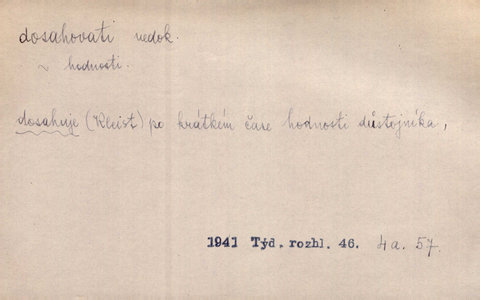 dosahovati nedok.
~ hodnosti.
dosahuje (Kleist) po krátkém čase hodnosti důstojníka,
1941 Týd. rozhl. 46. 4a. 57.